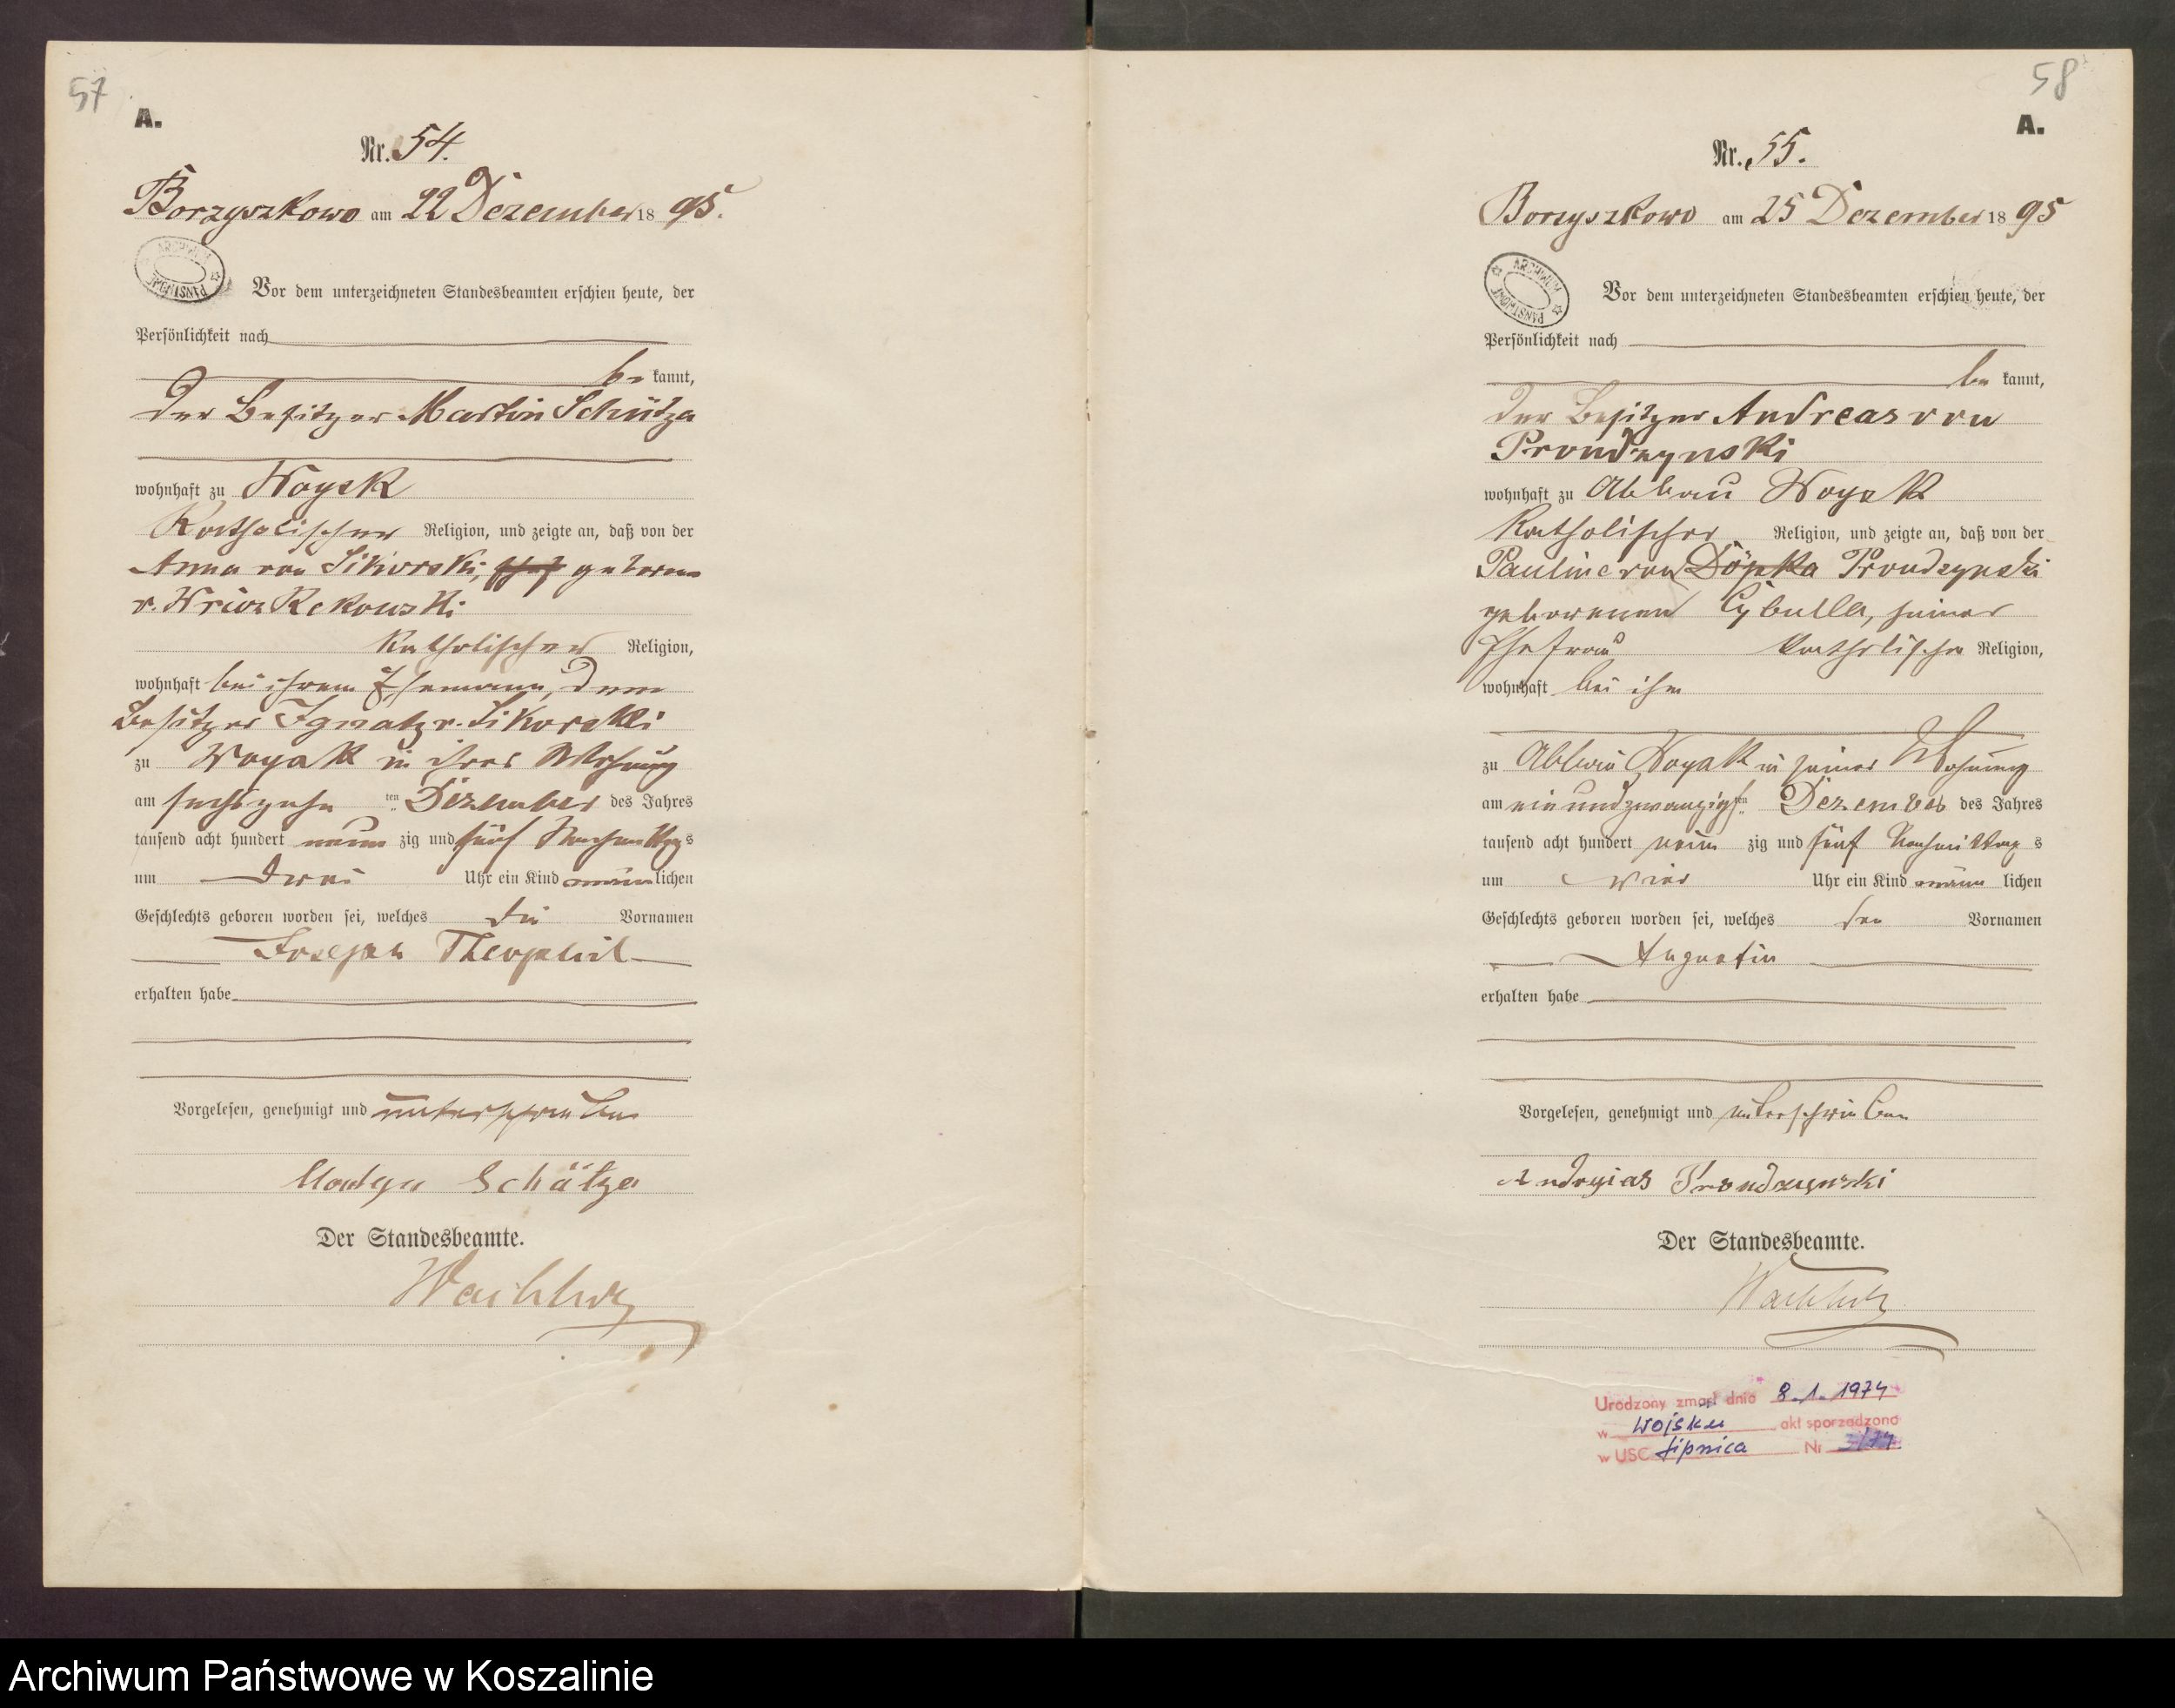 57
A.
Nr. 54.
Borzyszkowo am 22 Dezember 18 95.
ARCHIWUM PAŃSTWOWE
Vor dem unterzeichneten Standesbeamten erschien heute, der
Persönlichkeit nach
be kannt,
der Besitzer Martin Schütza
wohnhaft zu Woysk
Katholischer Religion, und zeigte an, daß von der
Anna von Sikorski, geborene
v. Wrycz Rekowski
Katholischer Religion,
wohnhaft bei ihrem Ehemann, dem
Besitzer Ignatz v. Sikorski
zu Woysk in ihrer Wohnung
am sechszehn ten Dezember des Jahres
tausend acht hundert neun zig und fünf Nachmittags
um drei Uhr ein Kind männlichen
Geschlechts geboren worden sei, welches die Vornamen
Joseph Theophil
erhalten habe
Vorgelesen, genehmigt und unterschrieben
Schütza
Der Standesbeamte.
58
A.
Nr. 55.
Borzyszkowo am 25 Dezember 18 95
ARCHIWUM PAŃSTWOWE
Vor dem unterzeichneten Standesbeamten erschien heute, der
Persönlichkeit nach
be kannt,
der Besitzer Andreas von
Prondzynski
wohnhaft zu Abbau Woysk
Katholischer Religion, und zeigte an, daß von der
Pauline von Döpka Prondzynski
geborenen Cybulla, seiner
Ehefrau Katholischer Religion,
wohnhaft bei ihm
zu Abbau Woysk in seiner Wohnung
am einundzwanzigsten Dezember des Jahres
tausend acht hundert neun zig und fünf Nachmittags
um vier Uhr ein Kind männ lichen
Geschlechts geboren worden sei, welches den Vornamen
Augustin
erhalten habe
Vorgelesen, genehmigt und unterschrieben
Prondzynski
Der Standesbeamte.
Urodzony zmarł dnia 8.1.1974
w Wojsku akt sporządzono
w USC Lipnica Nr 3/74
Archiwum Państwowe w Koszalinie